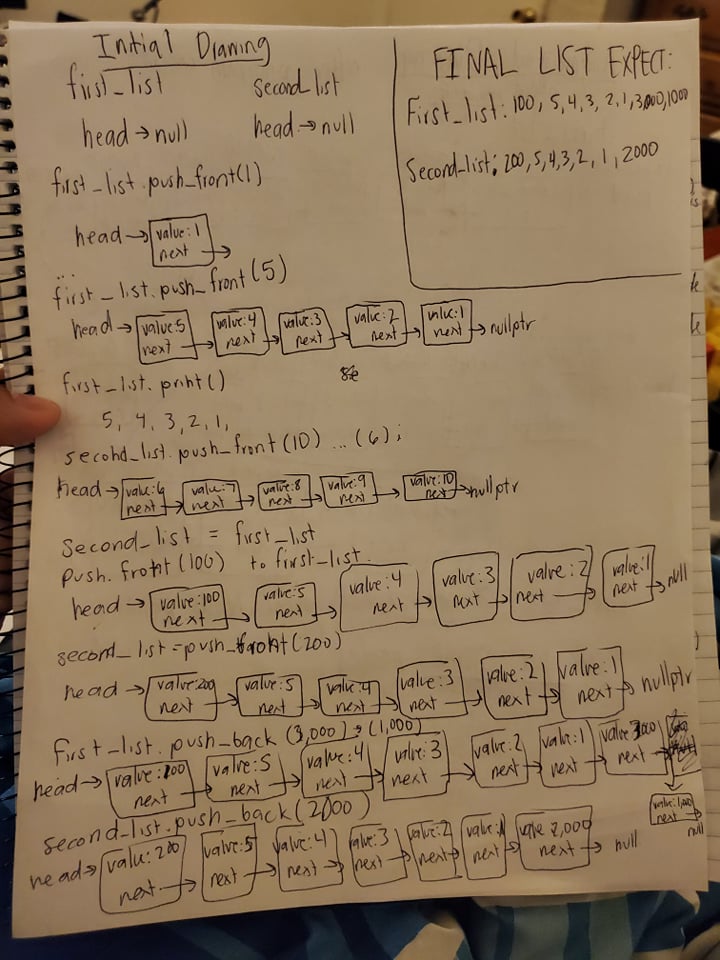 Initial Drawing
first_list second_list
head → null head → null
FINAL LIST EXPECT:
First_list: 100, 5, 4, 3, 2, 1, 3,000, 1000
Second_list: 200, 5, 4, 3, 2, 1, 2000
first_list.push_front(1)
head → value: 1 next →
...
first_list.push_front(5)
head → value: 5 next → value: 4 next → value: 3 next → value: 2 next → value: 1 next → nullptr
first_list.print()
5, 4, 3, 2, 1,
second_list.push_front(10) ... (6);
head → value: 6 next → value: 7 next → value: 8 next → value: 9 next → value: 10 next → nullptr
Second_list = first_list
Push.front(100) to first_list.
head → value: 100 next → value: 5 next → value: 4 next → value: 3 next → value: 2 next → value: 1 next → null
second_list = push_front(200)
head → value: 200 next → value: 5 next → value: 4 next → value: 3 next → value: 2 next → value: 1 next → nullptr
first_list.push_back (3,000) → (1,000)
head → value: 100 next → value: 5 next → value: 4 next → value: 3 next → value: 2 next → value: 1 next → value 3000 next → value: 1,000 next → null
second_list.push_back(2000)
head → value: 200 next → value: 5 next → value: 4 next → value: 3 next → value: 2 next → value: 1 next → value 2,000 next → null